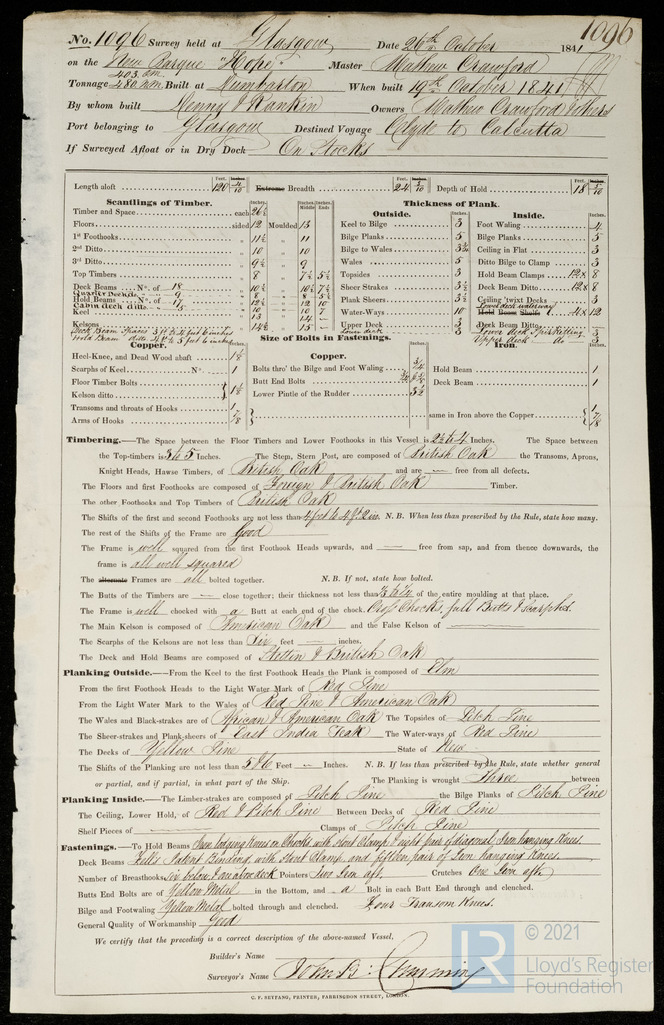 1096
No. 1096 Survey held at Glasgow Date 26th October 1841
on the New Barque "Hope" Master Mathew Crawford
Tonnage 403 om. 480 nm. Built at Dumbarton When built 19th October 1841
By whom built Denny & Rankin Owners Mathew Crawford & others
Port belonging to Glasgow Destined Voyage Clyde to Calcutta
If Surveyed Afloat or in Dry Dock On Stocks
Length aloft Feet. 120 Inches. 4/10 Extreme Breadth Feet. 24 Inches. Depth of Hold Feet. 18 Inches. 5/10
Scantlings of Timber.
Timber and Space each 26½
Floors sided 12 Moulded 13
1st Foothooks 11½ 11
2nd Ditto 10 10
3rd Ditto 9½ 9
Top Timbers 8 7½ 5½
Deck Beams No. of 18 10½ 10½ 7½
Quarter Deck do 9 8 8 5½
Hold Beams No. of 17 12½ 12 10
Cabin deck ditto 15 10 10 7
Keel 13 14
Kelsons 14½ 15
Deck Beam Spaces 3 ft to 4 feet 6 inches
Hold Beam ditto 4 ft to 5 feet 6 inches
Thickness of Plank.
Outside.
Keel to Bilge 3
Bilge Planks 5
Bilge to Wales
Wales 5
Topsides 3
Sheer Strakes 3½
Plank Sheers 3½
Water-Ways 10
Upper Deck 3
Lower deck 3
Inside.
Foot Waling 4
Bilge Planks 5
Ceiling in Flat 3
Ditto Bilge to Clamp 3
Hold Beam Clamps 12 x 8
Deck Beam Ditto 12 x 8
Ceiling 'twixt Decks 3
Lower deck waterway
Hold Beam Shelfs 4 x 12
Deck Beam Ditto
Lower deck Spirketting 3
Upper deck do 3
Size of Bolts in Fastenings.
Copper.
Heel-Knee, and Dead Wood abaft 1¼
Scarphs of Keel No. 1
Floor Timber Bolts
Kelson ditto 1⅛
Transoms and throats of Hooks 1
Arms of Hooks 7/8
Copper.
Bolts thro' the Bilge and Foot Waling 3/4
Butt End Bolts
Lower Pintle of the Rudder 3½
Iron.
Hold Beam 1
Deck Beam 1
same in Iron above the Copper 1 7/8
Timbering.—The Space between the Floor Timbers and Lower Foothooks in this Vessel is 2½ to 4 Inches. The Space between
the Top-timbers is 3 to 5 Inches. The Stem, Stern Post, are composed of British Oak the Transoms, Aprons,
Knight Heads, Hawse Timbers, of British Oak and are — free from all defects.
The Floors and first Foothooks are composed of Foreign & British Oak Timber.
The other Foothooks and Top Timbers of British Oak
The Shifts of the first and second Foothooks are not less than 4 feet to 4 ft 2 in. N. B. When less than prescribed by the Rule, state how many.
The rest of the Shifts of the Frame are Good
The Frame is well squared from the first Foothook Heads upwards, and — free from sap, and from thence downwards, the
frame is all well squared
The alternate Frames are all bolted together. N. B. If not, state how bolted.
The Butts of the Timbers are — close together; their thickness not less than ⅓ to ¼ of the entire moulding at that place.
The Frame is well chocked with a Butt at each end of the chock. Crop Chocks, full Butts & scarphed.
The Main Kelson is composed of American Oak and the False Kelson of —
The Scarphs of the Kelsons are not less than Six feet — inches.
The Deck and Hold Beams are composed of Stettin & British Oak
Planking Outside.—From the Keel to the first Foothook Heads the Plank is composed of Elm
From the first Foothook Heads to the Light Water Mark of Red Pine
From the Light Water Mark to the Wales of Red Pine & American Oak
The Wales and Black-strakes are of African & American Oak The Topsides of Pitch Pine
The Sheer-strakes and Plank-sheers of East India Teak The Water-ways of Red Pine
The Decks of Yellow Pine State of New
The Shifts of the Planking are not less than 5 & 6 Feet — Inches. N. B. If less than prescribed by the Rule, state whether general
or partial, and if partial, in what part of the Ship. The Planking is wrought Three between
Planking Inside.—The Limber-strakes are composed of Pitch Pine the Bilge Planks of Pitch Pine
The Ceiling, Lower Hold, of Red & Pitch Pine Between Decks of Red Pine
Shelf Pieces of — Clamps of Pitch Pine
Fastenings.—To Hold Beams Iron lodging Knees on Chocks with Stout Clamp & eight pair of diagonal Iron hanging Knees.
Deck Beams Fells Patent Binding, with Stout Clamp, and fifteen pair of Iron hanging Knees
Number of Breasthooks six below, 1 on above deck Pointers Two Iron aft. Crutches One Iron aft
Butts End Bolts are of Yellow Metal in the Bottom, and — a Bolt in each Butt End through and clenched.
Bilge and Footwaling Yellow Metal bolted through and clenched. Four Transom Knees.
General Quality of Workmanship Good
We certify that the preceding is a correct description of the above-named Vessel,
Builder's Name
Surveyor's Name John B: Cumming
C. F. SEYFANG, PRINTER, FARRINGDON STREET, LONDON.
LR © 2021
Lloyd's Register
Foundation